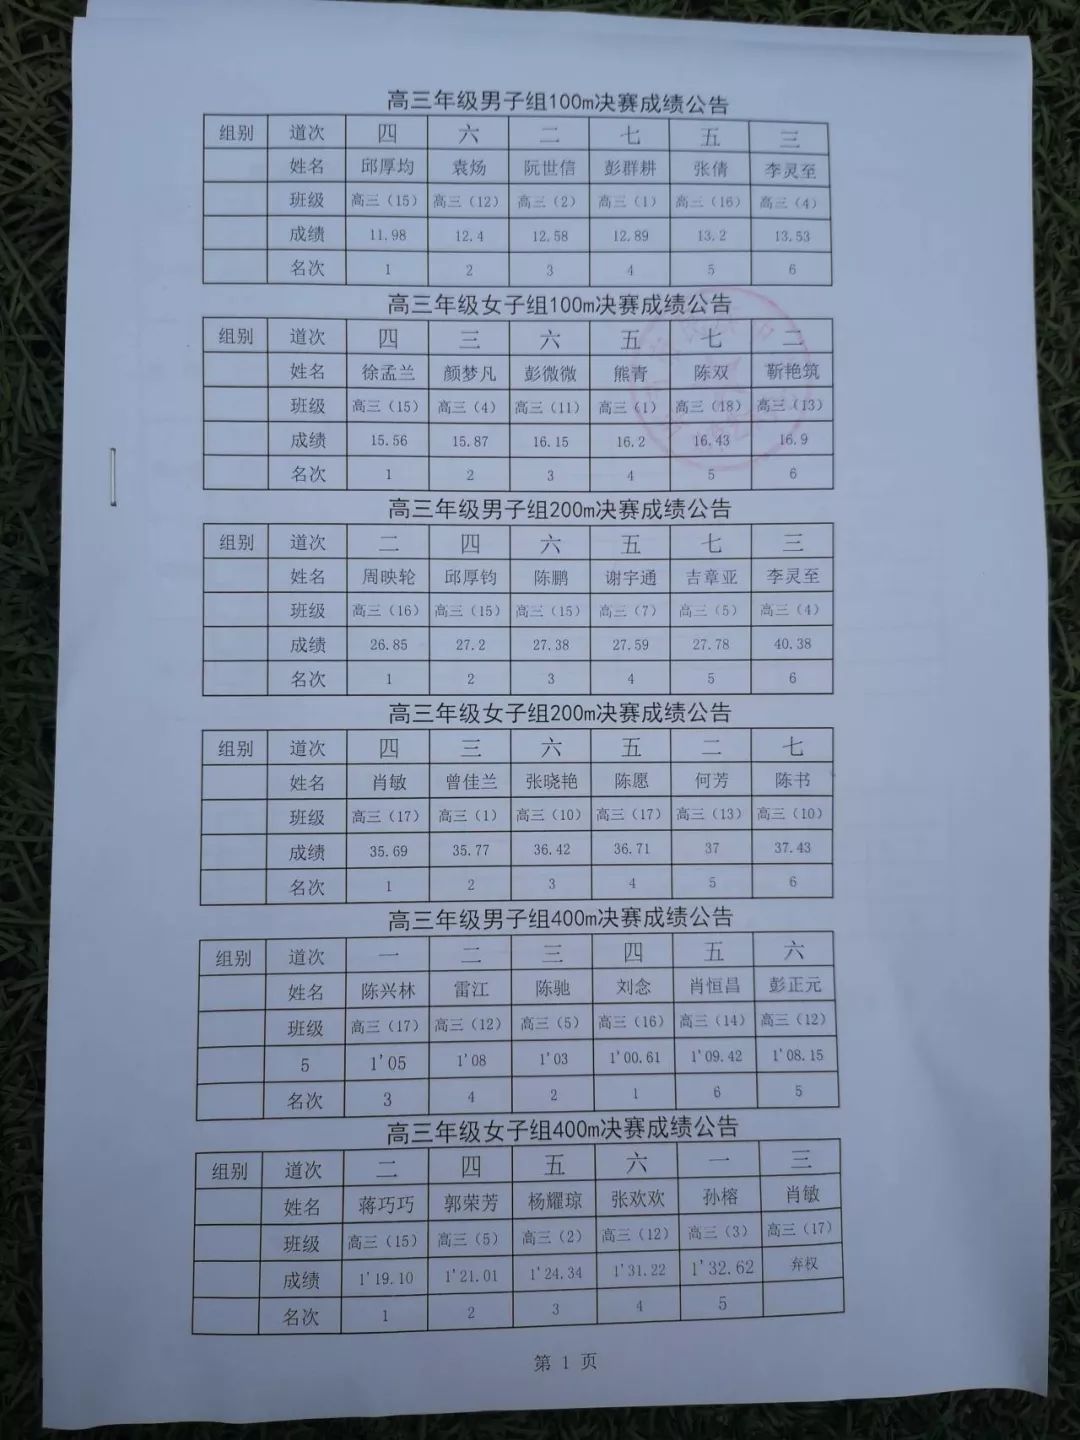 高三年级男子组100m决赛成绩公告
组别 道次 四 六 二 七 五 三
姓名 邱厚均 袁炀 阮世信 彭群耕 张倩 李灵至
班级 高三（15） 高三（12） 高三（2） 高三（1） 高三（16） 高三（4）
成绩 11.98 12.4 12.58 12.89 13.2 13.53
名次 1 2 3 4 5 6
高三年级女子组100m决赛成绩公告
组别 道次 四 三 六 五 七 二
姓名 徐孟兰 颜梦凡 彭微微 熊青 陈双 靳艳筑
班级 高三（15） 高三（4） 高三（11） 高三（1） 高三（18） 高三（13）
成绩 15.56 15.87 16.15 16.2 16.43 16.9
名次 1 2 3 4 5 6
高三年级男子组200m决赛成绩公告
组别 道次 二 四 六 五 七 三
姓名 周映轮 邱厚钧 陈鹏 谢宇通 吉章亚 李灵至
班级 高三（16） 高三（15） 高三（15） 高三（7） 高三（5） 高三（4）
成绩 26.85 27.2 27.38 27.59 27.78 40.38
名次 1 2 3 4 5 6
高三年级女子组200m决赛成绩公告
组别 道次 四 三 六 五 二 七
姓名 肖敏 曾佳兰 张晓艳 陈愿 何芳 陈书
班级 高三（17） 高三（1） 高三（10） 高三（17） 高三（13） 高三（10）
成绩 35.69 35.77 36.42 36.71 37 37.43
名次 1 2 3 4 5 6
高三年级男子组400m决赛成绩公告
组别 道次 一 二 三 四 五 六
姓名 陈兴林 雷江 陈驰 刘念 肖恒昌 彭正元
班级 高三（17） 高三（12） 高三（5） 高三（16） 高三（14） 高三（12）
5 1'05 1'08 1'03 1'00.61 1'09.42 1'08.15
名次 3 4 2 1 6 5
高三年级女子组400m决赛成绩公告
组别 道次 二 四 五 六 一 三
姓名 蒋巧巧 郭荣芳 杨耀琼 张欢欢 孙榕 肖敏
班级 高三（15） 高三（5） 高三（2） 高三（12） 高三（3） 高三（17）
成绩 1'19.10 1'21.01 1'24.34 1'31.22 1'32.62 弃权
名次 1 2 3 4 5
第 1 页